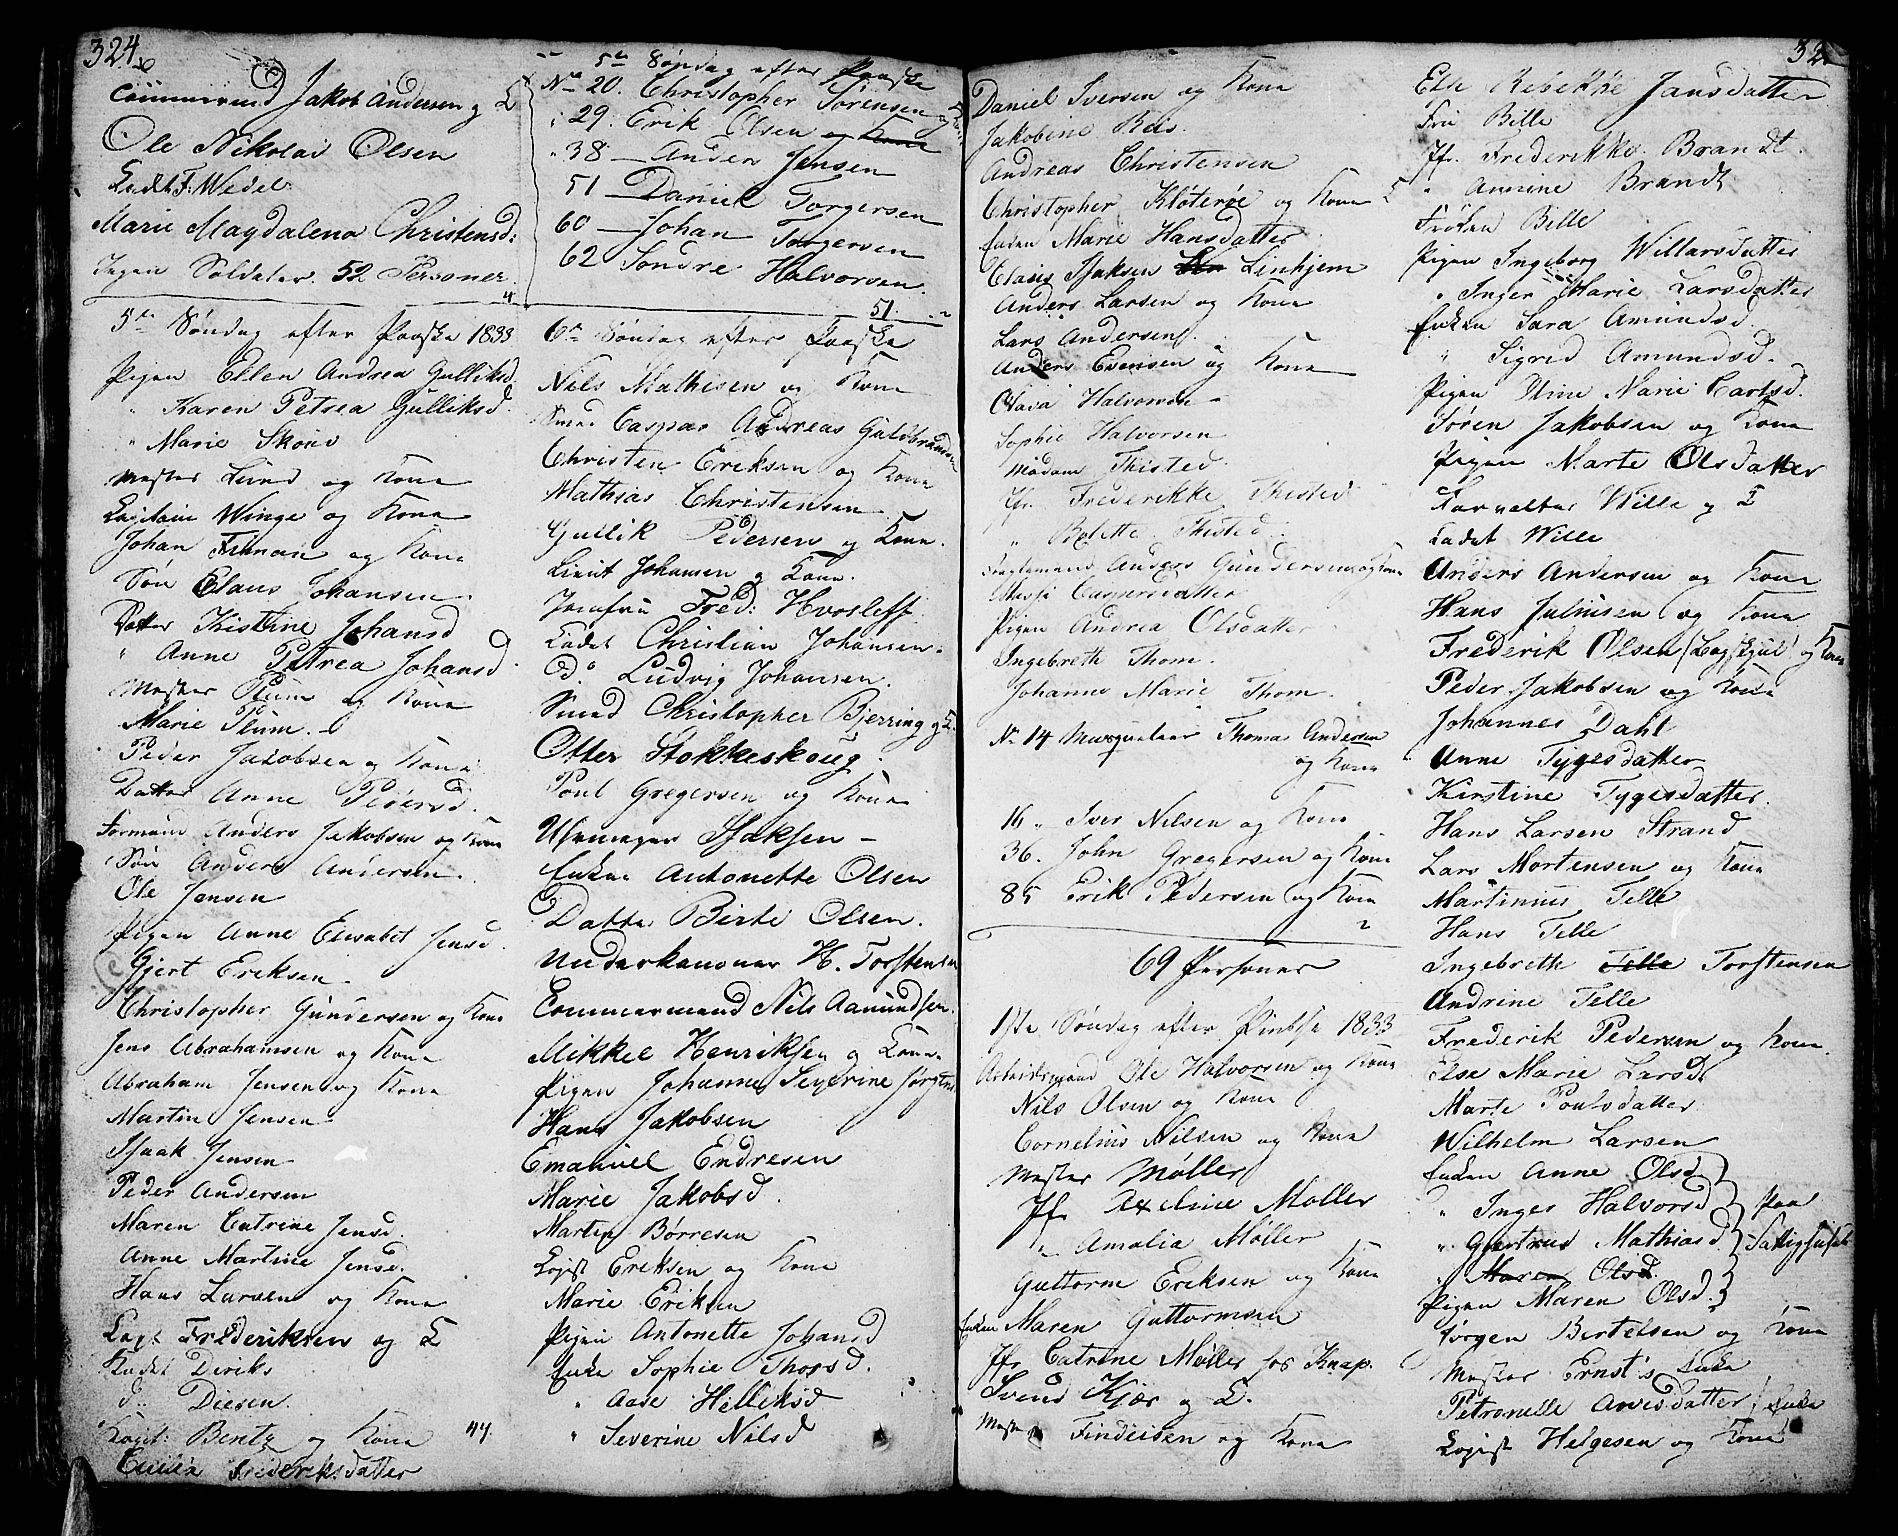 324
Commermd Jakob Andersen og K
Ole Nikolai Olsen
Cadt F. Wedel
Marie Magdalena Christensd:
Ingen Soldater. 52 Personer.
5te Søndag efter Paaske 1833
Pigen Ellen Andrea Gulliksd.
" Karen Petrea Gulliksd.
" Marie Skou
Mester Lund og Kone
Capitain Winge og Kone
Johan Fuman og Kone
Søn Claus Johansen
Datter Kistine Johansd
" Anne Petrea Johansd.
Mester Plum og Kone
Marie Plum.
Peder Jakobsen og Kone
Datter Anne Pedersd.
Formand Anders Jakobsen og Kone
Søn Anders Andersen.
Ole Jensen
Pigen Anne Elisabet Jensd.
Gjert Eriksen
Christopher Gundersen og Kone
Jens Abrahamsen og Kone
Abraham Jensen og Kone
Martin Jensen
Isaak Jensen
Peder Andersen
Maren Catrine Jensd.
Anne Martine Jensd.
Hans Larsen og Kone
Capt Frederiksen og K
Kadet Deriks
d. Diesen.
Capt: Bentz og Kone 44.
Frederiksdatter
5te Søndag efter Paaske
No 20. Christopher Sørensen
" 29. Erik Olsen og Kone
" 38 Anders Jensen
51 Daniel Torgersen
60 Johan Torgersen
62 Sondre Halvorsen
51.
6te Søndag efter Paaske
Nils Mathisen og Kone
Smed Caspar Andreas Guldbrandsen
Christen Eriksen og Kone
Mathias Christensen
Gullik Pedersen og Kone.
Lieut Johansen og Kone.
Jomfru Fred: Hvosleff
Cadet Christian Johansen
Do Ludvig Johansen.
Smed Christopher Bjerring og K.
Otter Stokkeskoug.
Poul Gregersen og Kone
Isaksen
Enke Antonette Olsen
Datter Birte Olsen.
Underkanoner H. Torstensen
Commermand Nils Aamundsen.
Mikkel Henriksen og Kone
Pigen Johanne Severine Jørgens
Hans Jakobsen
Emanuel Endresen
Marie Jakobsd.
Morten Børresen
Logist Eriksen og Kone
Marie Eriksen
Pigen Antonette Johansd
Enke Sophie Thorsd.
" Aase Helliksd
" Severine Nilsd
Daniel Iversen og Kone
Jakobine Beis.
Andreas Christensen
Christopher Kløterøe og Kone
Enken Marie Hansdatter
Claus Isaksen Linhjem
Anders Larsen og Kone
Lars Andersen
Anders Evensen og Kone
Olava Halvorsen
Sophie Halvorsen
Madam Thisted.
Jfr. Frederikke Thisted
" Bolette Thisted.
Anders Gundersen og Kone
Pigen Andrea Olsdatter
Ingebreth Thom.
Johanne Marie Thom.
No 14 Musquetair Thomas Andersen
og Kone
16 " Iver Nilsen og Kone
36. John Gregersen og Kone
85 Erik Pedersen og Kone
69 Personer
1ste Søndag efter Pintse 1833
Arbeidsmand Ole Halvorsen og Kone
Nils Olsen og Kone
Cornelius Nilsen og Kone
Mester Møller
Jfr. Axeline Møller
" Amalia Møller
Guttorm Eriksen og Kone
Enken Maren Guttormsen
Jfr. Catrine Møller hos Knap.
Svend Kjær og K.
Mester Findeisen og Kone
32
Else Rebekke Jansdatter
Fru Bille
Jfr. Frederikke Brandt.
" Annine Brandt
Frøken Bille
Pigen Ingeborg Willarsdatter
" Inger Marie Larsdatter
Enken Sara Amundsd.
" Sigrid Amundsd.
Pigen Stine Marie Carlsd.
Søren Jakobsen og Kone
Pigen Marte Olsdatter
Forvalter Wille og K
Cadet Wille
Anders Andersen og Kone
Hans Juliusen og Kone
Frederik Olsen (Lagskjul) og Kone
Peder Jakobsen og Kone
Johannes Dahl
Anne Tygesdatter
Kirstine Tygesdatter.
Hans Larsen Strand
Lars Mortensen og Kone
Martinius Telle
Hans Telle
Ingebreth Telle Torstensen
Andrine Telle
Frederik Pedersen og Kone.
Else Marie Larsd
Marte Poulsdatter
Wilhelm Larsen
Enken Anne Olsd
" Inger Halvorsd } paa
" Gjertrud Mathiasd. } Fattighuset
" Maren Olsd.
Pigen Maren Olsd.
Jørgen Bertelsen og Kone
Mester Ernst's Enke
Petronelle Arvesdatter, Enke
Logist Helgesen og Kone